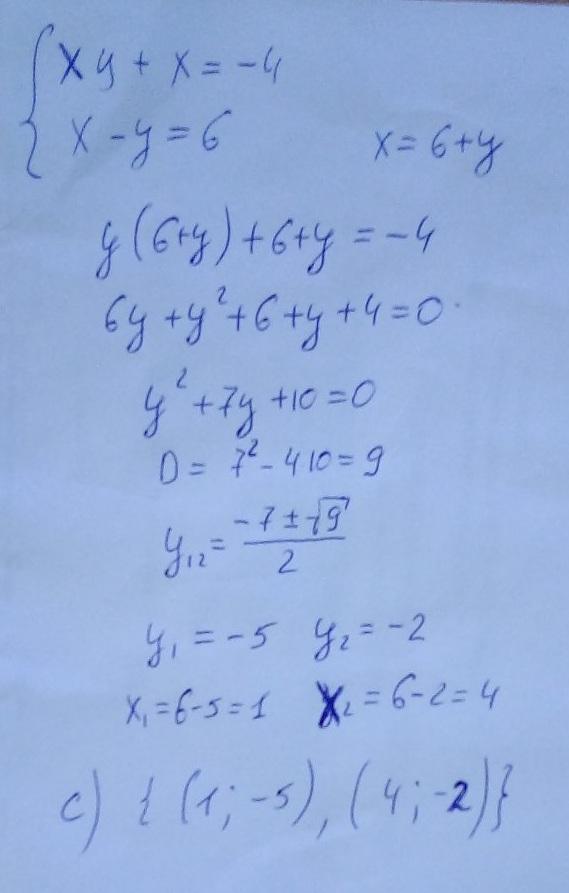 xy + x = -4
x - y = 6    x = 6+y
y(6+y)+6+y = -4
6y+y²+6+y+4=0
y²+7y+10=0
D = 7²-4 10 = 9
y₁₂ = (-7 ± √9)/2
y₁ = -5  y₂ = -2
x₁=6-5=1  x₂=6-2=4
c) { (1; -5), (4; -2)}